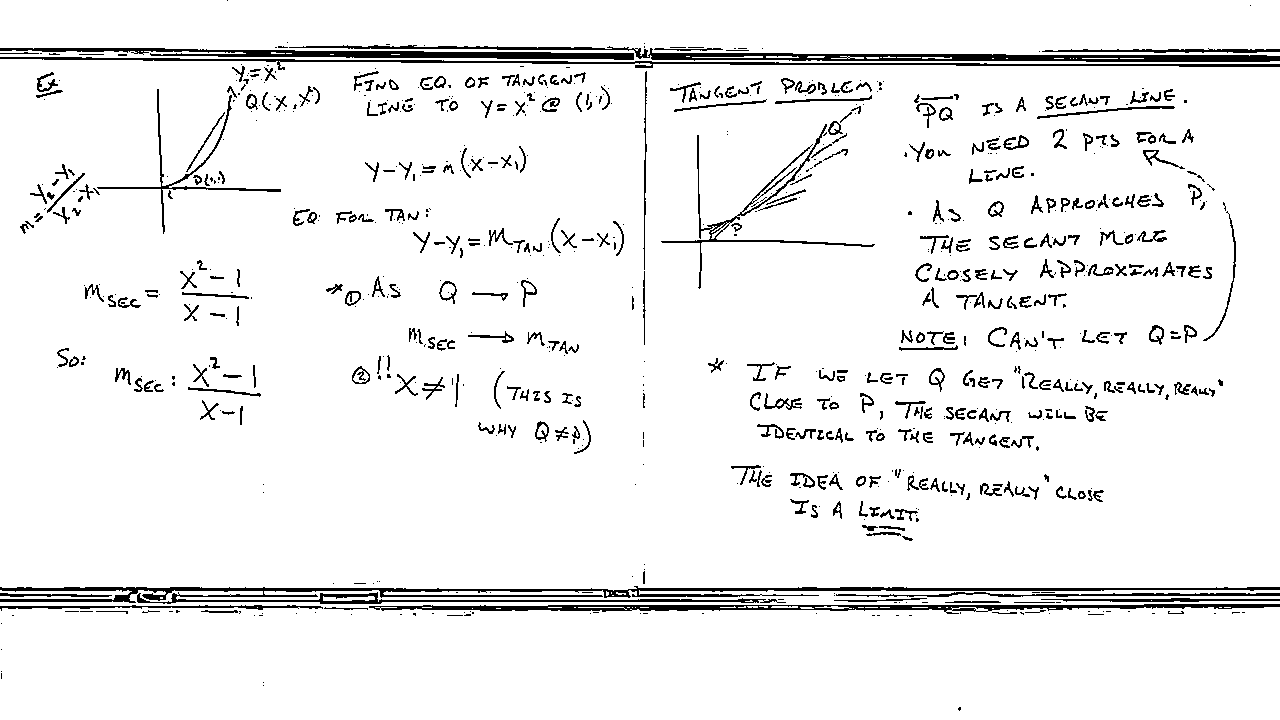 Ex
Y=X²
Q(X,X²)
P(1,1)
m = Y₂-Y₁ / X₂-X₁
m SEC = X²-1 / X-1
So:
m SEC : X²-1 / X-1
FIND EQ. OF TANGENT
LINE TO Y=X² @ (1,1)
Y-Y₁=m(X-X₁)
EQ FOR TAN:
Y-Y₁=M TAN (X-X₁)
* ① AS Q → P
m SEC → m TAN
② !! X≠1 (THIS IS
WHY Q≠P)
TANGENT PROBLEM:
Q
P
PQ IS A SECANT LINE.
· YOU NEED 2 PTS FOR A
LINE.
· AS Q APPROACHES P,
THE SECANT MORE
CLOSELY APPROXIMATES
A TANGENT.
NOTE: CAN'T LET Q=P
* IF WE LET Q GET "REALLY, REALLY, REALLY"
CLOSE TO P, THE SECANT WILL BE
IDENTICAL TO THE TANGENT.
THE IDEA OF "REALLY, REALLY" CLOSE
IS A LIMIT.